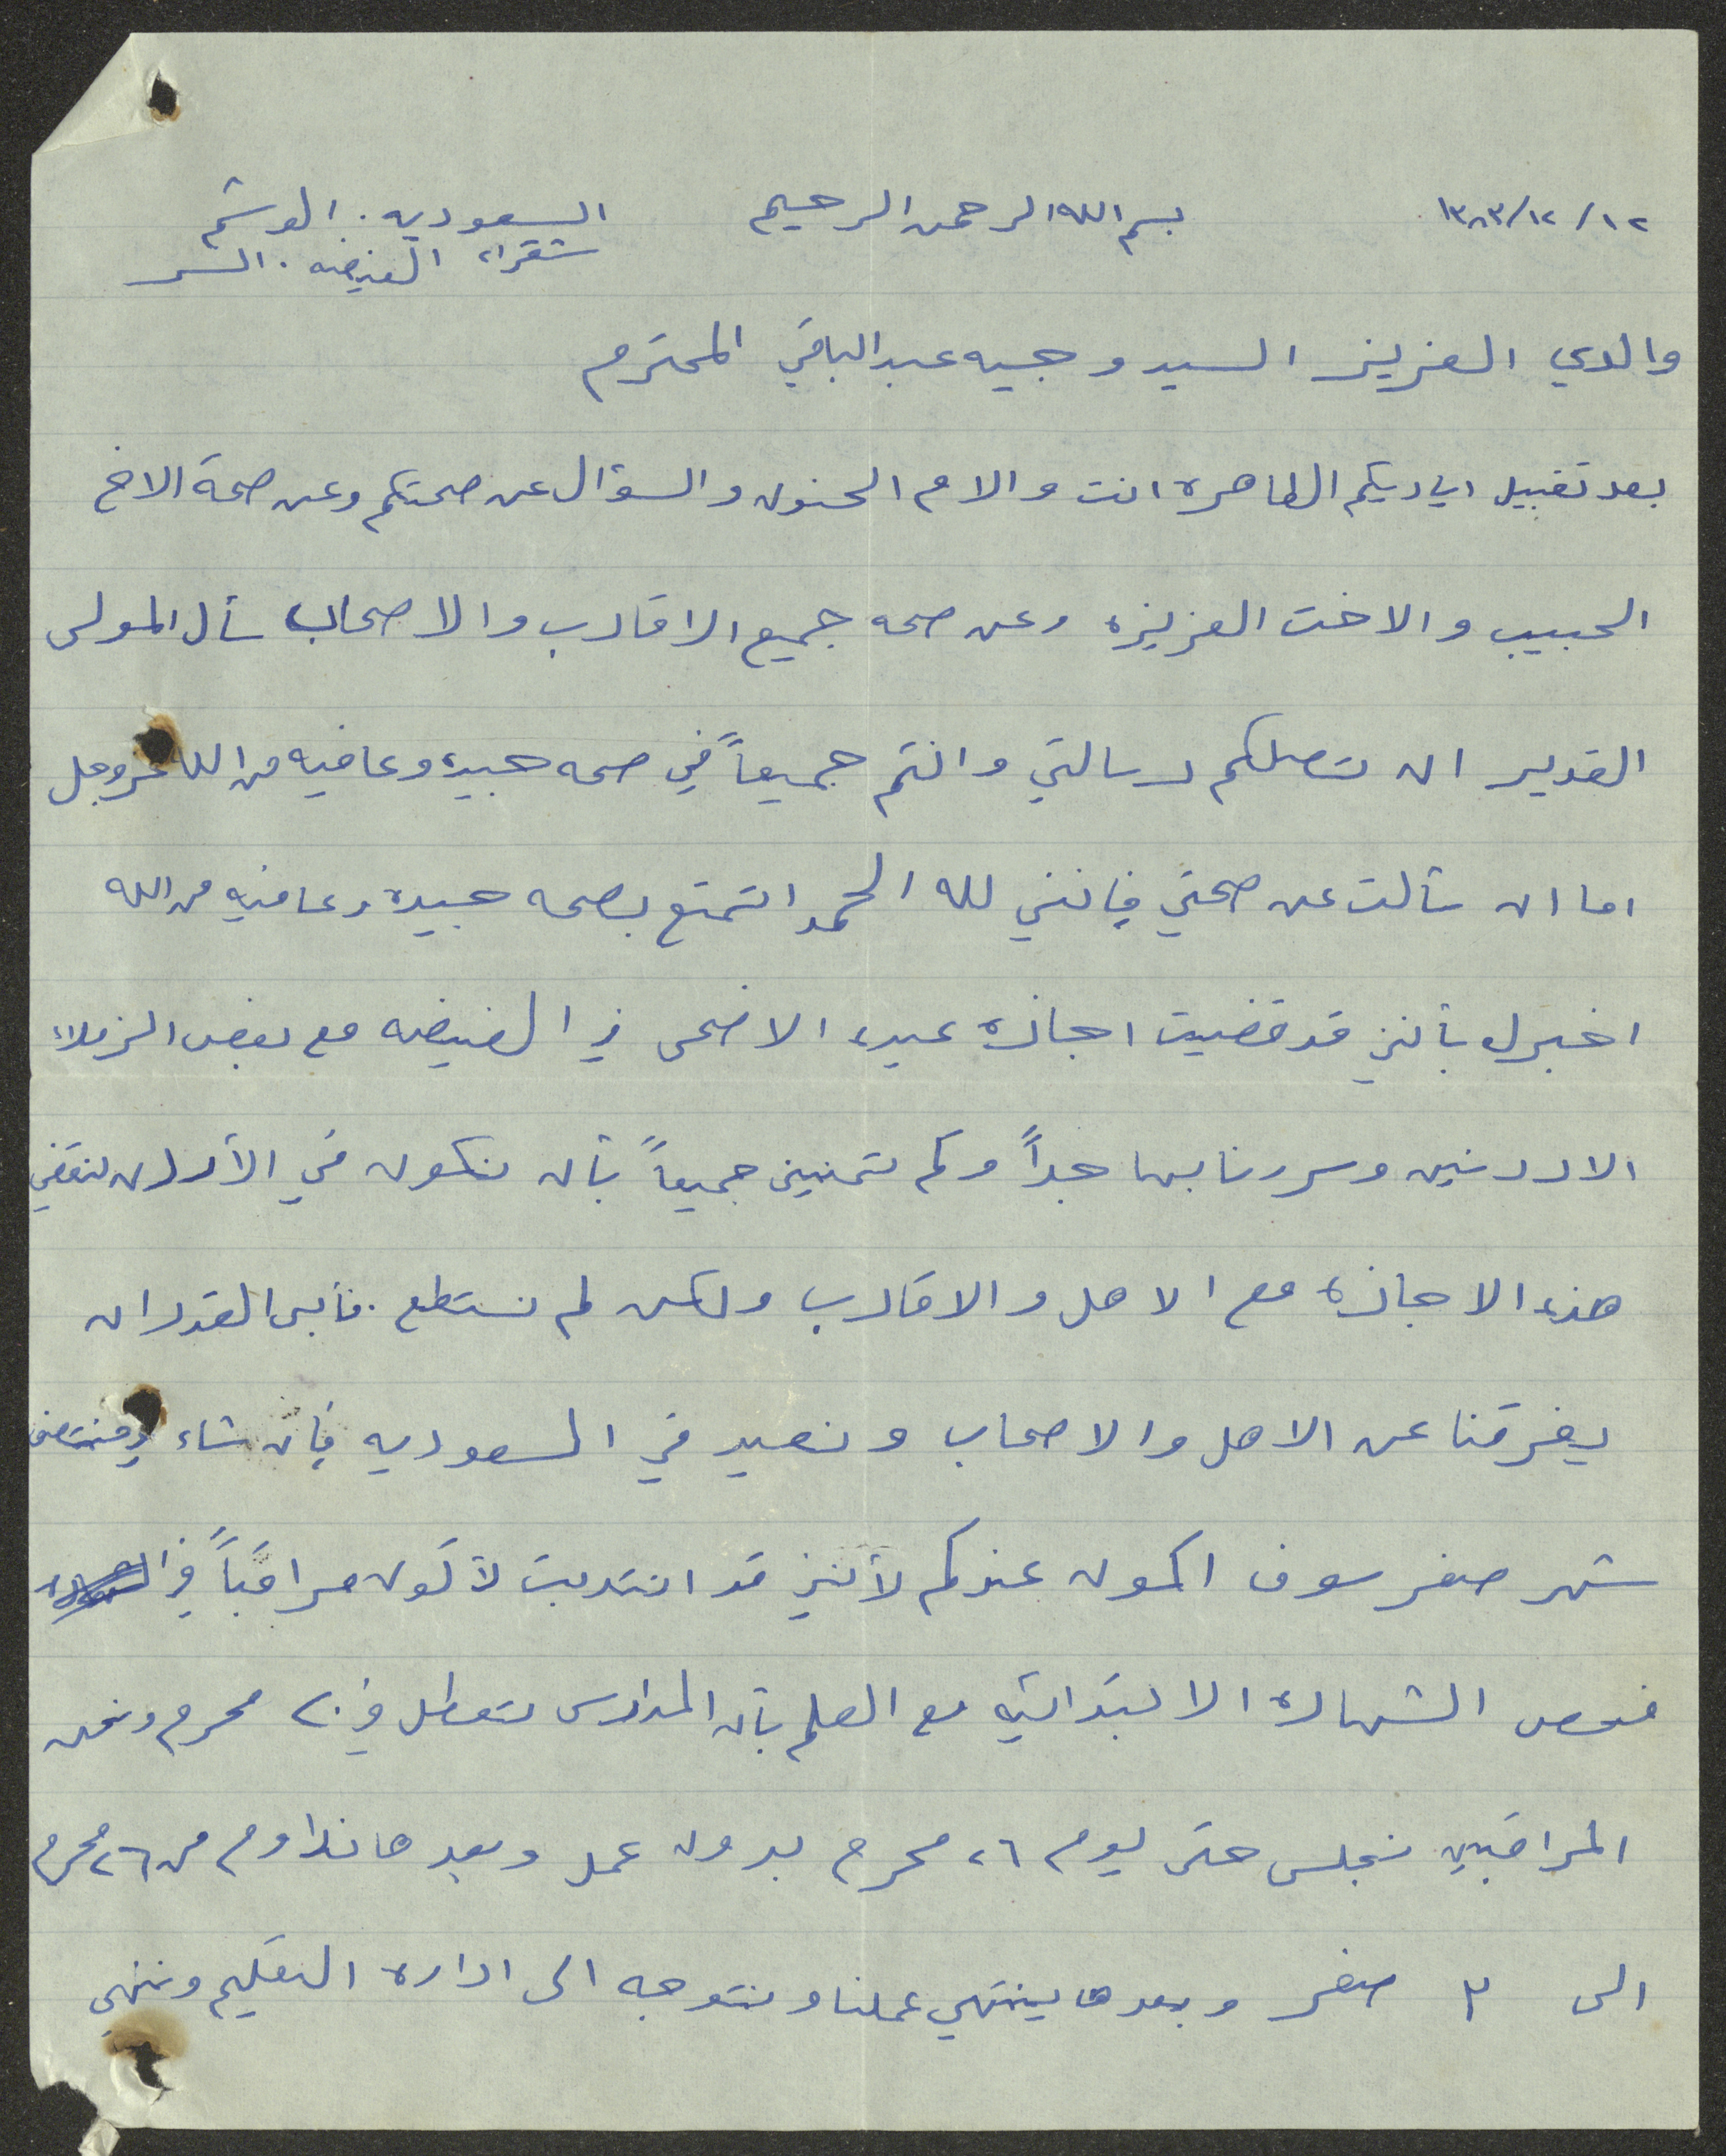 ١٢/١٢/١٣٨٣
بسم الله الرحمن الرحيم
السعوديه. الوشم
شقراء الفيضه. السر
والدي العزيز السيد وجيه عبد الباقي المحترم
بعد تقبيل اياديكم الطاهره انت والام الحنون والسؤال عن صحتكم وعن صحة الاخ
الحبيب والاخت العزيزه وعن صحه جميع الاقارب والاصحاب سأل المولى
القدير ان تصلكم رسالتي وانتم جميعاً في صحه جيده وعافيه من الله عز وجل
اما ان سألت عن صحتي فإنني لله الحمد اتمتع بصحه جيده وعافيه من الله
اخبرك بأنني قد قضيت اجازة عيد الاضحى في الفيضه مع بعض الزملاء
الاردنين وسررنا بها جداً وكم تمنين جميعاً بأن نكون في الأردن لنقضي
هذه الاجازة مع الاهل والاقارب ولكن لم نستطع. فأبى القدر ان
يفرقنا عن الاهل والاصحاب ونعيد في السعوديه فإن شاء ومنتصف
شهر صفر سوف اكون عندكم لأنني قد انتدبت لأكون مراقباً في
فحص الشهادة الابتدائيه مع العلم بأن المدارس تعطل في ٢٠ محرم ونحن
المراقبين نجلس حتى يوم ٢٦ محرم بدون عمل وبعدها نداوم من ٢٦ محرم
الى ٣ صفر وبعدها ينتهي عملنا ونتوجه الى اداره التعليم وننهي